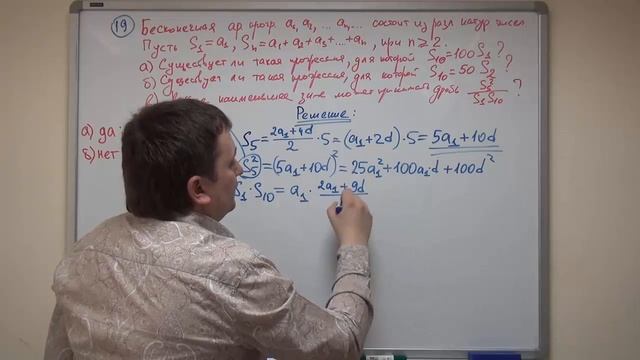 19 Бесконечная ар. прогр. a₁, a₂, ... aₙ, ... состоит из разл. натур. чисел
Пусть S₁ = a₁, Sₙ = a₁ + a₂ + a₃ + ... + aₙ, при n ≥ 2.
а) Существует ли такая прогрессия, для которой S₁₀ = 100 S₁ ?
б) Существует ли такая прогрессия, для которой S₁₀ = 50 S₂ ?
наименьшее может принимать дробь S₅² / S₁S₁₀ ?
Решение:
а) да
б) нет
S₅ = (2a₁ + 4d)/2 · 5 = (a₁ + 2d) · 5 = 5a₁ + 10d
S₅² = (5a₁ + 10d)² = 25a₁² + 100a₁·d + 100d²
S₁ · S₁₀ = a₁ · 2a₁ + 9d